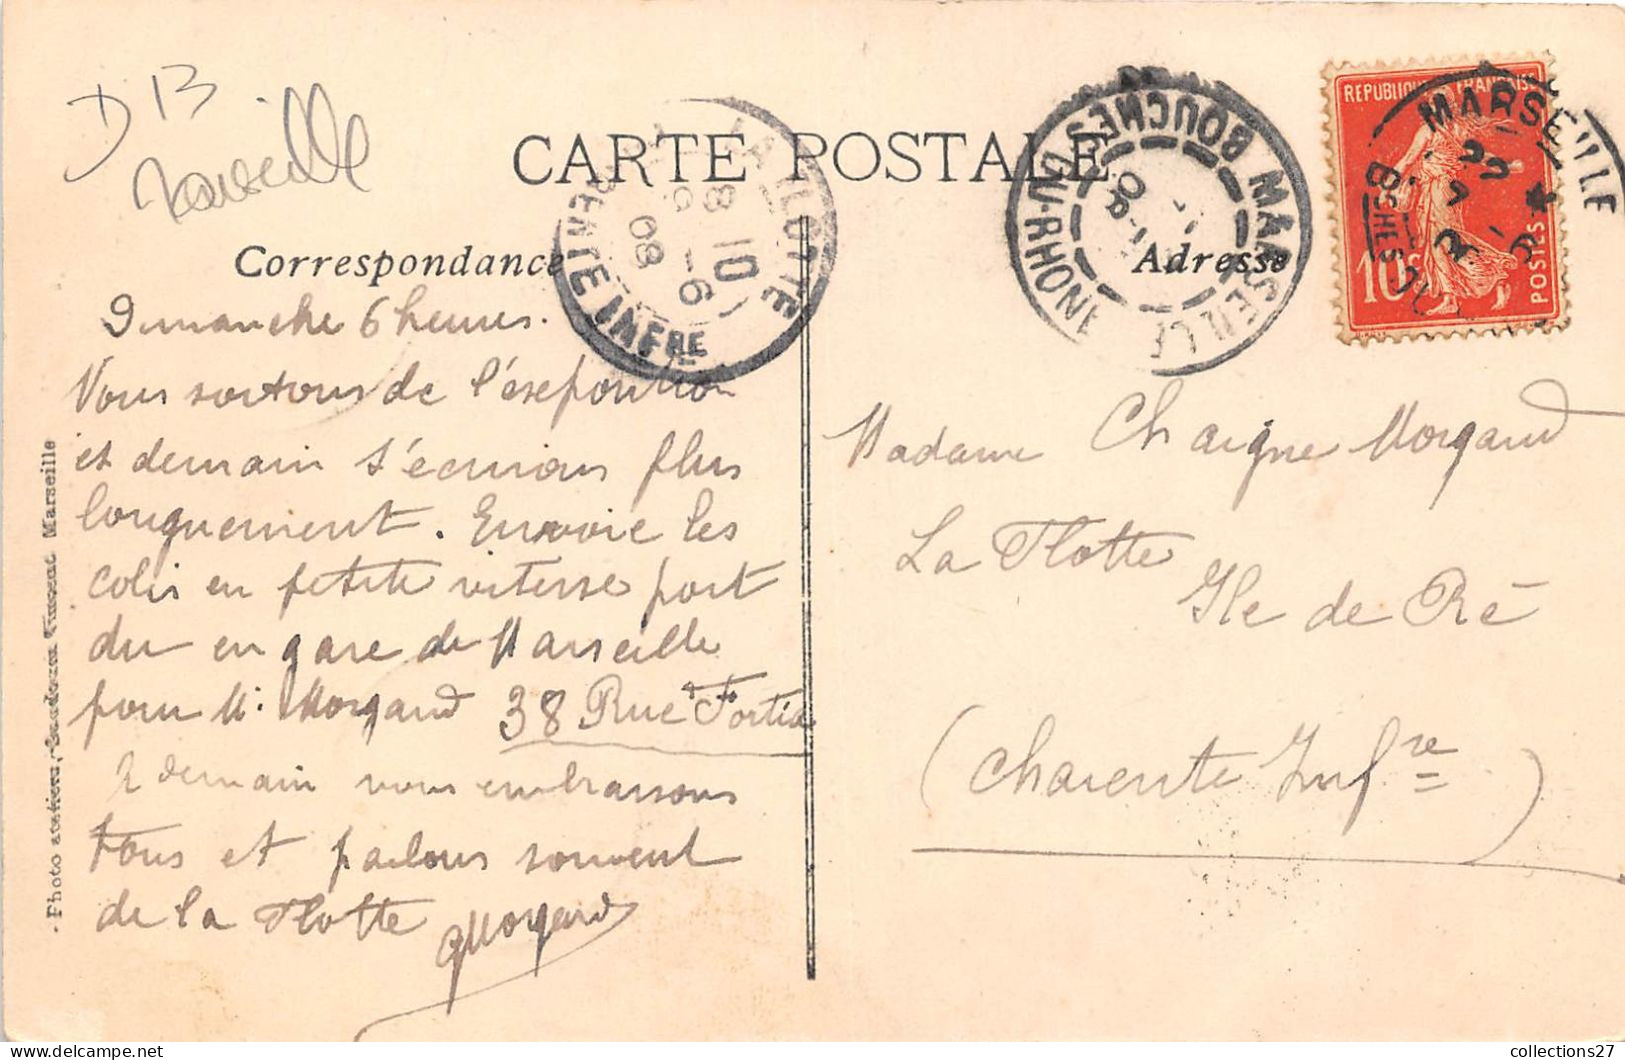 D 13
Marseille
CARTE POSTALE
Correspondance
Dimanche 6 heures.
Nous sortons de l'exposition
et demain t'écrirons plus
longuement. Envoie les
colis en petite vitesse port
du en gare de Marseille
pour M. Morgand 38 Rue Fortia
demain vous embrassons
tous et parlons souvent
de la Flotte Morgand
Photo ateliers, Vincent Marseille
LA FLOTTE
CHARENTE INFRE
8 10
6
08
MARSEILLE
BOUCHES DU-RHONE
Adresse
REPUBLIQUE FRANÇAISE
10c
POSTES
MARSEILLE
Madame Chaigne Morgand
La Flotte
Ile de Ré
(Charente Infre)
collections27